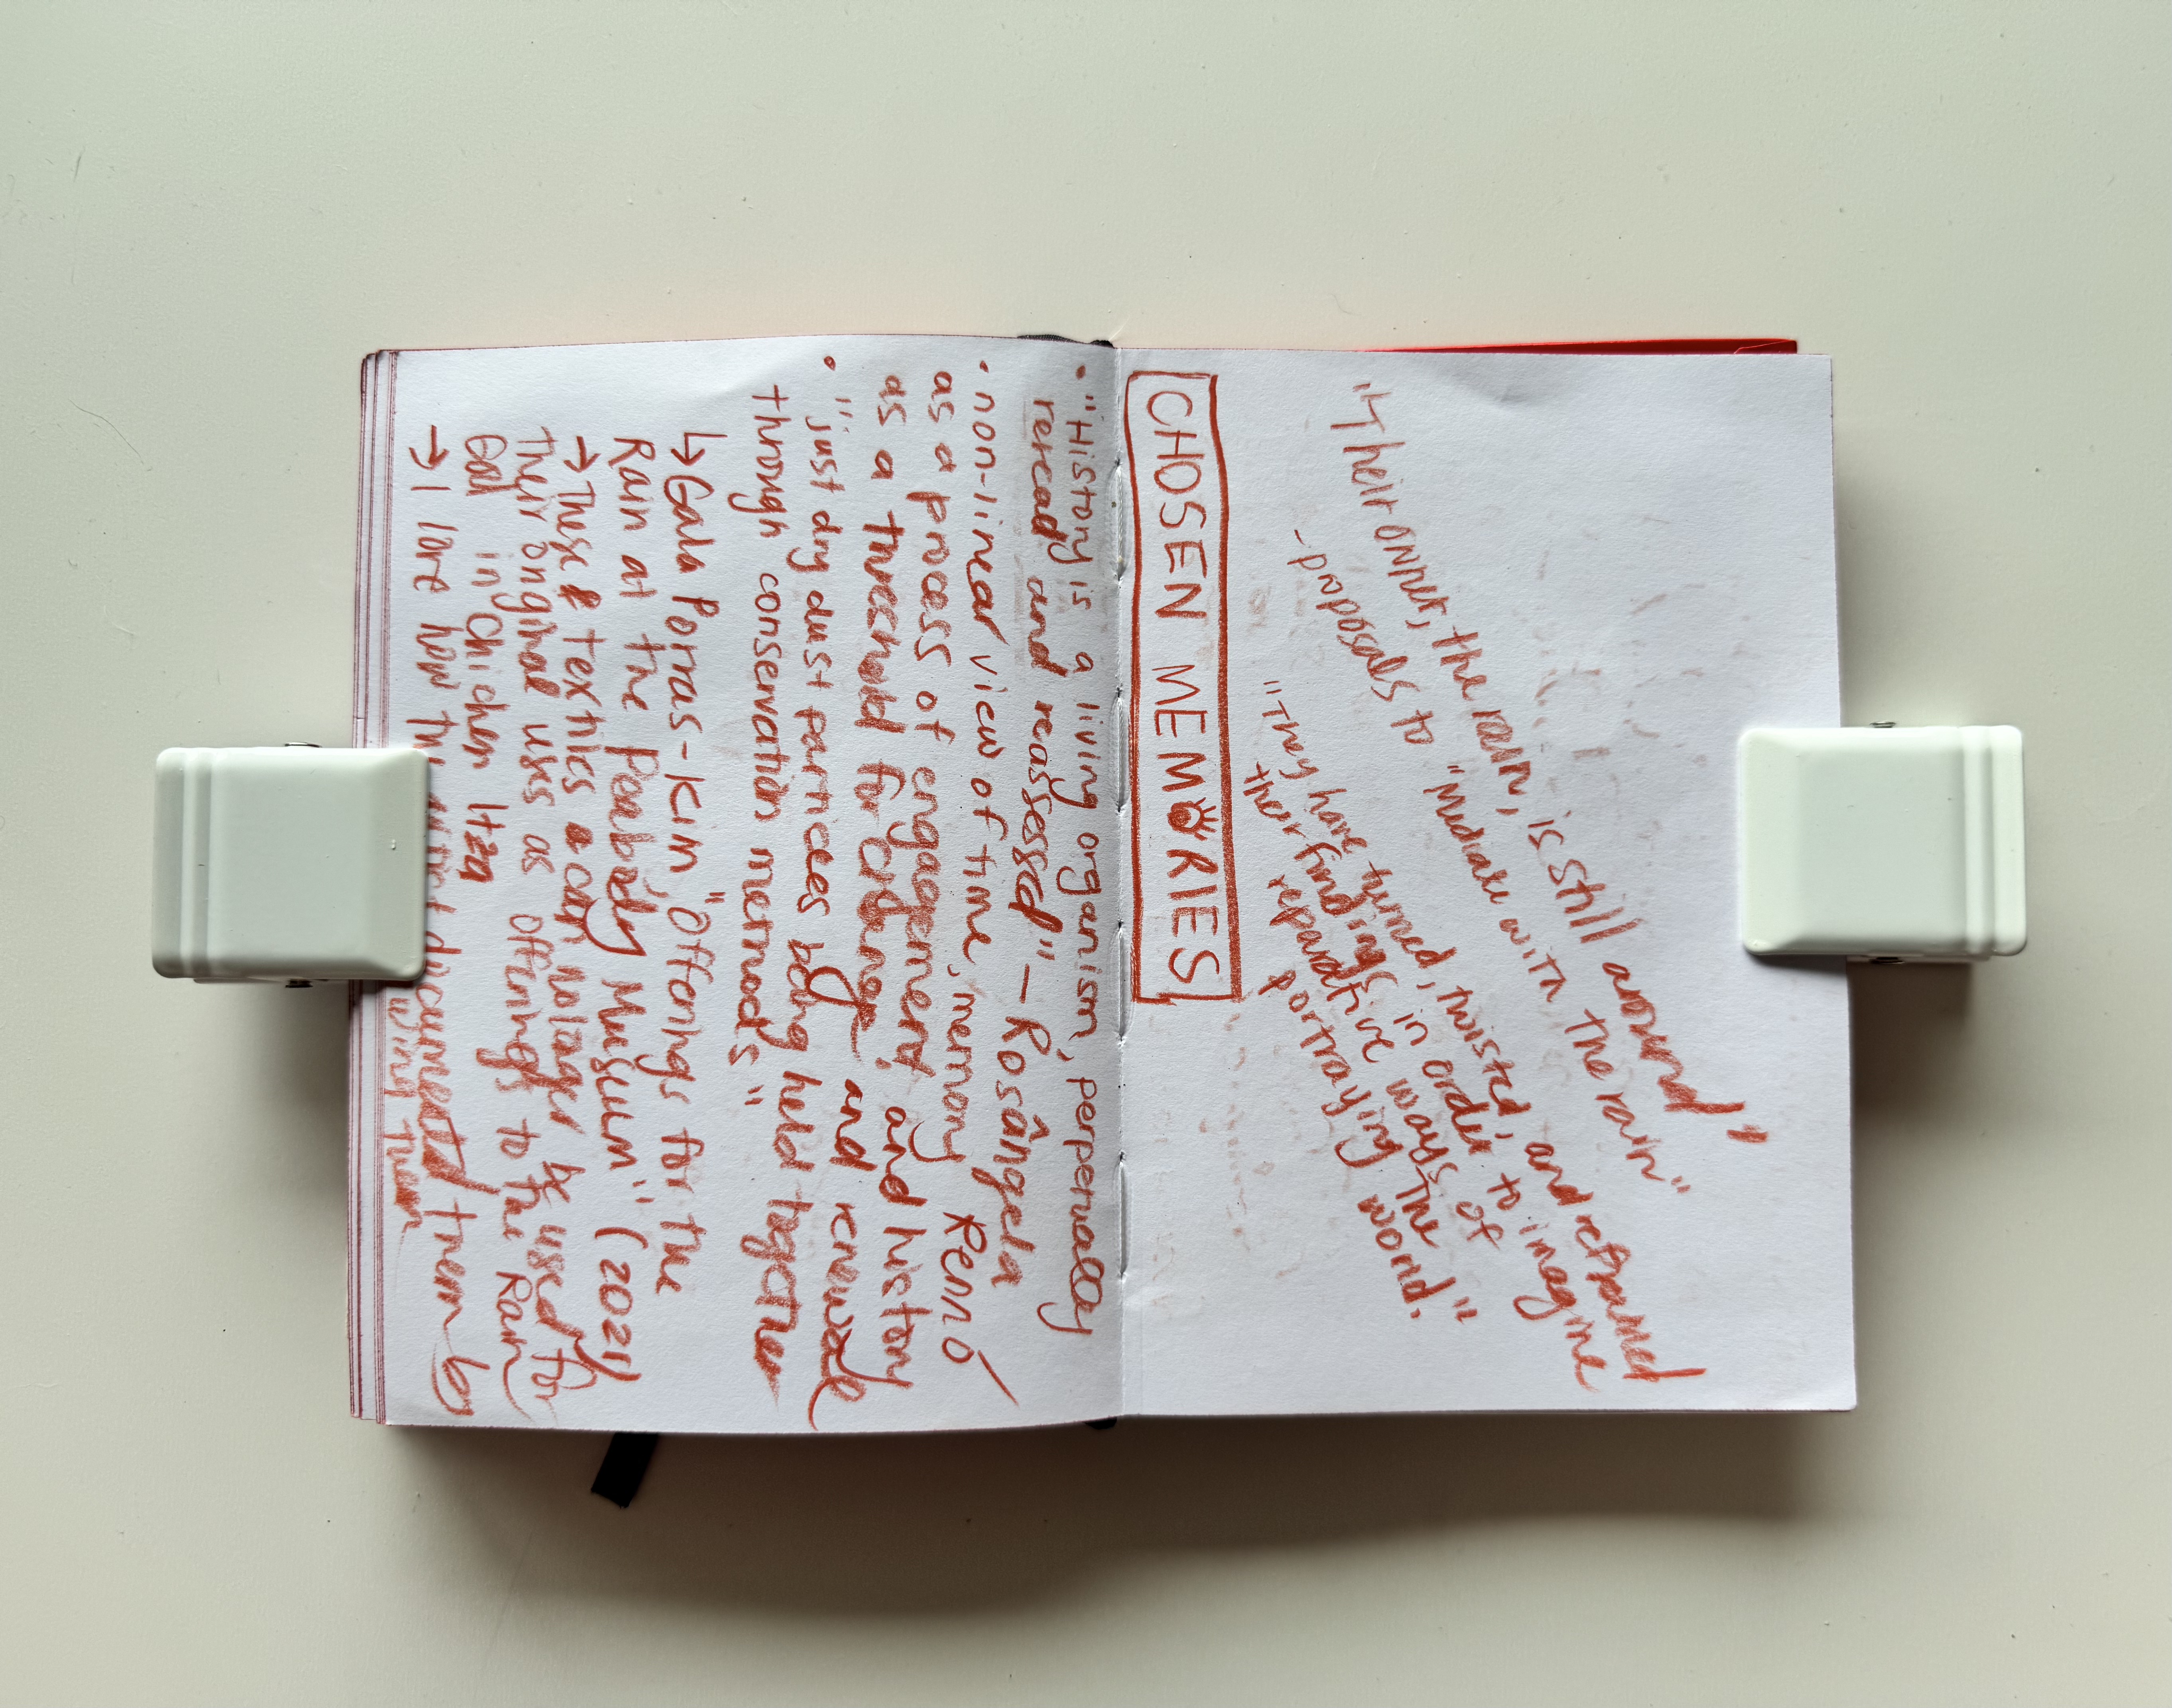 "Their owner, the rain, is still around"
-proposals to "Mediate with the rain"
"They have turned, twisted, and reframed
their findings in order to imagine
reparative ways of
portraying the world."
CHOSEN MEMORIES
• "History is a living organism, perpetually
reread and reassessed" – Rosângela
Rennó
• non-linear view of time, memory
as a process of engagement, and history
as a threshold for change and renewal
• "just dry dust particles being held together
through conservation methods"
↳ Gala Porras-Kim "Offerings for the
Rain at the Peabody Museum" (2021)
→ These textiles can no longer be used for
their original uses as offerings to the Rain
God in Chichen Itza
→ I love how the artist documented them by
them